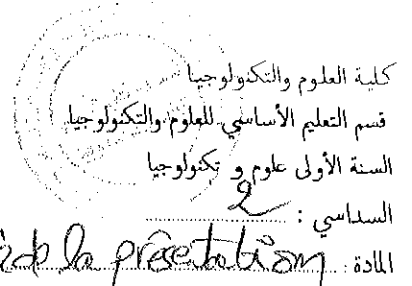 كلية العلوم والتكنولوجيا
قسم التعليم الأساسي للعلوم والتكنولوجيا
السنة الأولى علوم و تكنولوجيا
السداسي : 2
المادة : de la présentation